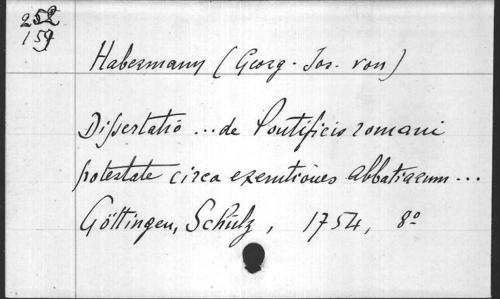 252
159
Habermann (Georg-Jos. von)
Dissertatio ... de Pontificis romani
potestate circa exemtiones abbatiarum ...
Göttingen, Schulz, 1754, 8°